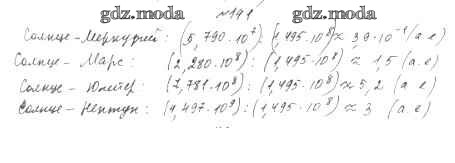 gdz.moda
gdz.moda
№191
Солнце - Меркурий : (5,790·10⁷) : (1,495·10⁸) ≈ 3,9·10⁻¹ (а.е)
Солнце - Марс : (2,280·10⁸) : (1,495·10⁸) ≈ 1,5 (а.е)
Солнце - Юпитер : (7,781·10⁸) : (1,495·10⁸) ≈ 5,2 (а.е)
Солнце - Нептун : (4,497·10⁹) : (1,495·10⁸) ≈ 3 (а.е)